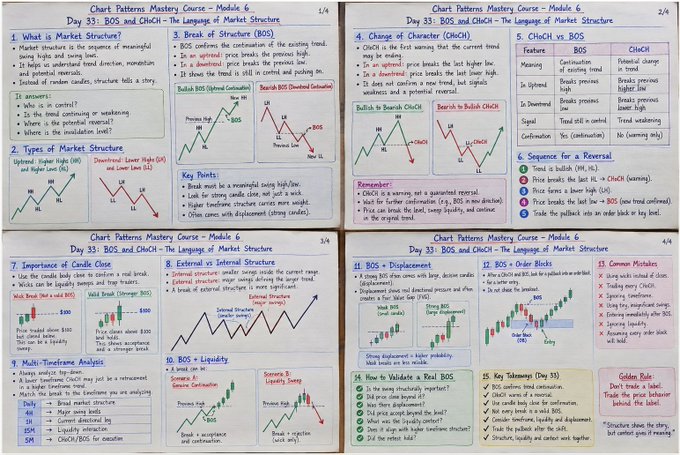 Chart Patterns Mastery Course – Module 6
1/4
Day 33: BOS and CHoCH – The Language of Market Structure
1. What is Market Structure?
• Market structure is the sequence of meaningful
swing highs and swing lows.
• It helps us understand trend direction, momentum
and potential reversals.
• Instead of random candles, structure tells a story.
It answers:
• Who is in control?
• Is the trend continuing or weakening?
• Where is the potential reversal?
• Where is the invalidation level?
2. Types of Market Structure
Uptrend: Higher Highs (HH)
and Higher Lows (HL)
HH
HH
HL
HL
Downtrend: Lower Highs (LH)
and Lower Lows (LL)
LH
LH
LL
LL
3. Break of Structure (BOS)
• BOS confirms the continuation of the existing trend.
• In an uptrend: price breaks the previous high.
• In a downtrend: price breaks the previous low.
• It shows the trend is still in control and pushing on.
Bullish BOS (Uptrend Continuation)
New HH
Previous High
BOS
HH
HH
HL
Bearish BOS (Downtrend Continuation)
LH
LH
LL
BOS
Previous Low
New LL
Key Points:
• Break must be a meaningful swing high/low.
• Look for strong candle close, not just a wick.
• Higher timeframe structure carries more weight.
• Often comes with displacement (strong candles).
Chart Patterns Mastery Course – Module 6
2/4
Day 33: BOS and CHoCH – The Language of Market Structure
4. Change of Character (CHoCH)
• CHoCH is the first warning that the current trend
may be ending.
• In an uptrend: price breaks the last higher low.
• In a downtrend: price breaks the last lower high.
• It does not confirm a new trend, but signals
weakness and a potential reversal.
Bullish to Bearish CHoCH
HH
HH
HL
CHoCH
Bearish to Bullish CHoCH
LH
LH
LL
CHoCH
LL
Remember:
• CHoCH is a warning, not a guaranteed reversal.
• Wait for further confirmation (e.g., BOS in new direction).
• Price can break the level, sweep liquidity, and continue
in the original trend.
5. CHoCH vs BOS
Feature BOS CHoCH
Meaning Continuation of existing trend Potential change in trend
In Uptrend Breaks previous high Breaks previous higher low
In Downtrend Breaks previous low Breaks previous lower high
Signal Trend still in control Trend weakening
Confirmation Yes (continuation) No (warning only)
6. Sequence for a Reversal
1 Trend is bullish (HH, HL).
2 Price breaks the last HL → CHoCH (warning).
3 Price forms a lower high (LH).
4 Price breaks the last low → BOS (new trend confirmed).
5 Trade the pullback into an order block or key level.
Chart Patterns Mastery Course – Module 6
3/4
Day 33: BOS and CHoCH – The Language of Market Structure
7. Importance of Candle Close
• Use the candle body close to confirm a real break.
• Wicks can be liquidity sweeps and trap traders.
Wick Break (Not a valid BOS)
$100
Price traded above $100
but closed below.
This can be a liquidity
sweep.
Valid Break (Stronger BOS)
$100
Price closes above $100
and holds.
This shows acceptance
and a stronger break.
9. Multi-Timeframe Analysis
• Always analyze top-down.
• A lower timeframe CHoCH may be just a retracement
in a higher timeframe trend.
• Match the break to the timeframe you are analyzing.
Daily → Broad market structure
4H → Major swing levels
1H → Current directional leg
15M → Liquidity interaction
5M → CHoCH/BOS for execution
8. External vs Internal Structure
Internal structure: smaller swings inside the current range.
External structure: major swings defining the larger trend.
• A break of external structure is more significant.
External Structure
(major swings)
Internal Structure
(smaller swings)
10. BOS + Liquidity
• A break can be:
Scenario A:
Genuine Continuation
Previous High
• Break + acceptance
and continuation.
Scenario B:
Liquidity Sweep
Previous High
• Break + rejection
(wick only).
Chart Patterns Mastery Course – Module 6
4/4
Day 33: BOS and CHoCH – The Language of Market Structure
11. BOS + Displacement
• A strong BOS often comes with large, decisive candles
(displacement).
• Displacement shows real directional pressure and often
creates a Fair Value Gap (FVG).
Weak BOS
(small candle)
Strong BOS
(large displacement)
Strong displacement = higher probability.
Weak breaks are less reliable.
12. BOS + Order Blocks
• After a CHoCH and BOS, look for a pullback into an order block,
for a better entry.
• Do not chase the breakout.
BOS
Order Block
(OB)
Entry
13. Common Mistakes
✗ Using wicks instead of closes.
✗ Trading every CHoCH.
✗ Ignoring timeframe.
✗ Using tiny, insignificant swings.
✗ Entering immediately after BOS.
✗ Ignoring liquidity.
✗ Assuming every break
is guaranteed.
14. How to Validate a Real BOS
✓ Is the swing structurally important?
✓ Did price close beyond it?
✓ Was there displacement?
✓ Did price accept beyond the level?
✓ What was the liquidity context?
✓ Does it align with higher timeframe structure?
✓ Did the retest hold?
15. Key Takeaways (Day 33)
✓ BOS confirms trend continuation.
✓ CHoCH warns of a reversal.
✓ Use candle body close for confirmation.
✓ Not every break is a valid BOS.
✓ Consider timeframe, liquidity and displacement.
✓ Trade the pullback after the shift.
✓ Structure, liquidity and context work together.
Golden Rule:
Don't trade a label.
Trade the price behavior
behind the label.
"Structure shows the story,
but context gives it meaning."